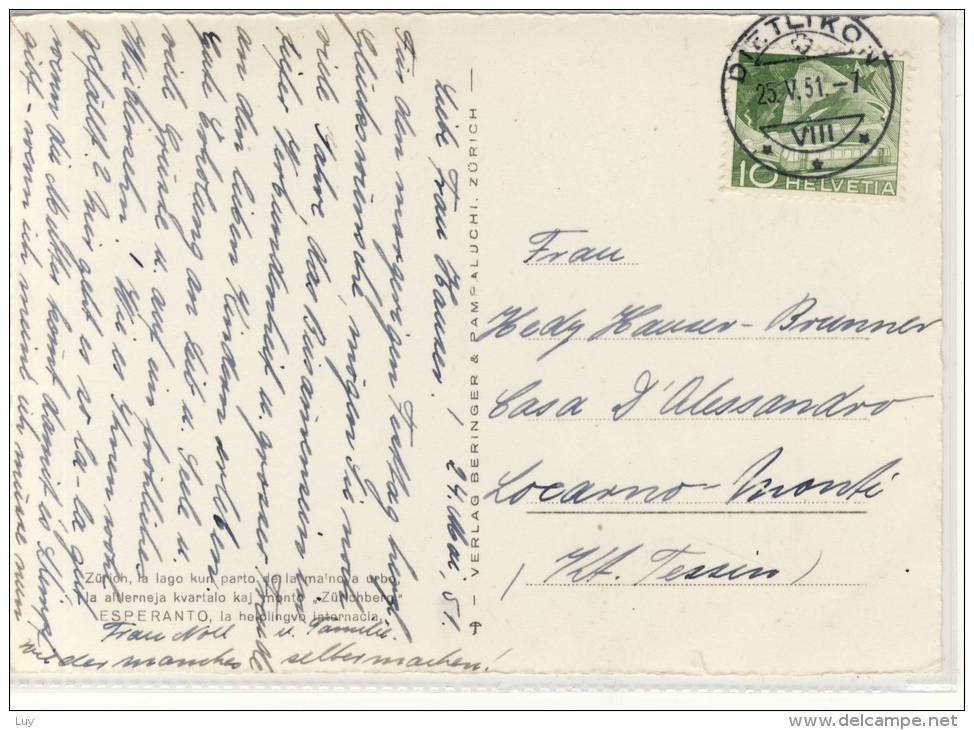 Liebe Frau Hauser! 24. Mai, 51.
Für den morgigen Festtag herzl.
Glückwünsche, mögen Sie noch
viele Jahre, das Beisammensein in
tiefer Verbundenheit u. grosser Freude
an den lieben Kindern erleben.
Gute Erholung an Leib u. Seele u.
viele Grüsse u. auf ein fröhliches
Wiedersehn. Wie es Ihnen wohl
gefällt? Mir geht es so-la-la gut
wenn die
gut - wenn ich meine ich müsse nun
wieder manches selbermachen!
Frau Noll u. Familie.
Zürich, la lago kun parto de la malnova urbo,
la altlerneja kvartalo kaj monto „Zürichberg"
ESPERANTO, la helplingvo internacia.
— VERLAG BERINGER & PAMPALUCHI, ZÜRICH —
DIETLIKON
25.V.51.-7
VIII
10 HELVETIA
Frau
Hedy Hauser-Brunner
Casa D'Alessandro
Locarno-Monti
(Kt. Tessin)
Luy
www.delcampe.net